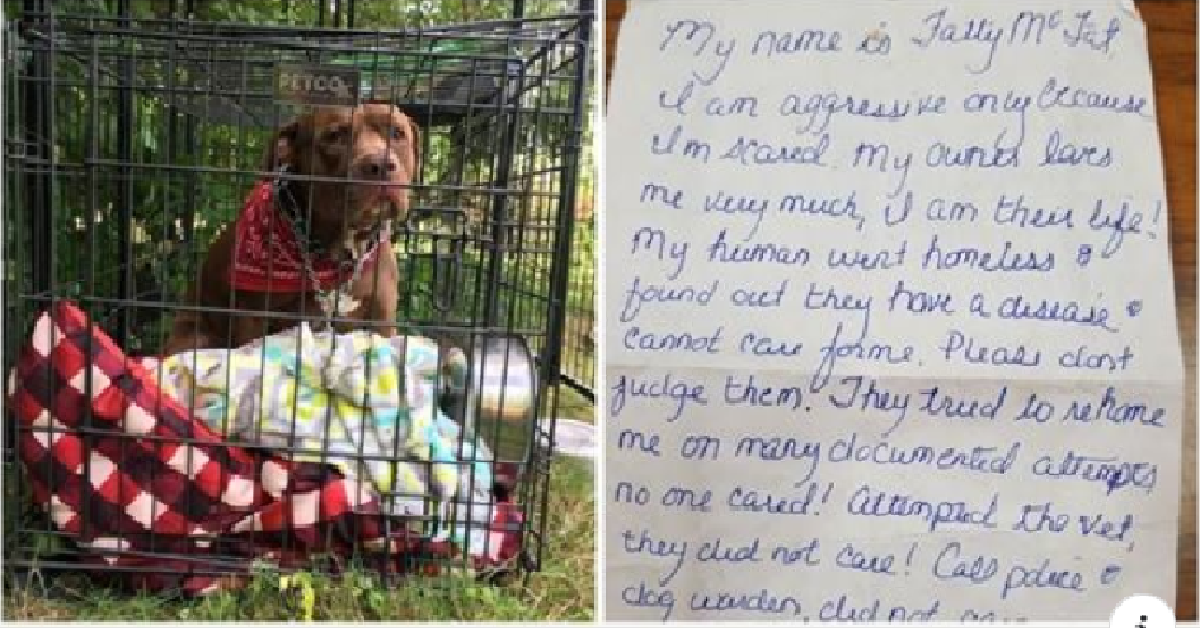 PETCO
My name is Fatty McFat,
I am aggressive only because
I'm scared. My owner loves
me very much, I am their life!
My human went homeless &
found out they have a disease &
cannot care for me. Please dont
judge them! They tried to rehome
me on many documented attempts
no one cared! Attempted the vet,
they did not care! Call police &
dog warden, did not